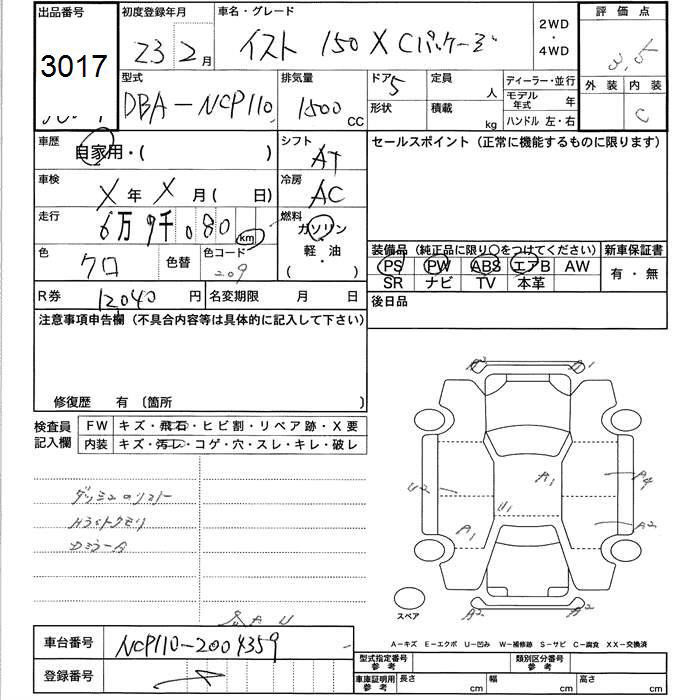 出品番号 初度登録年月 車名・グレード 2WD・4WD 評価点
3017 23年2月 イスト 150 X Cパッケージ 3.5
型式 排気量 ドア 定員 ディーラー・並行 外装 内装
DBA-NCP110 1500 CC 5 人 モデル年式 年 C
形状 積載 kg ハンドル 左・右
車歴 自家用・( ) シフト AT セールスポイント（正常に機能するものに限ります）
車検 X年 X月( 日) 冷房 AC
走行 6万9千080 km 燃料 ガソリン・軽・油 ( )
色 クロ 色替 色コード 209
装備品（純正品に限り○をつけてください） 新車保証書
PS PW ABS エアB AW 有・無
SR ナビ TV 本革
R券 12040円 名変期限 月 日 後日品
注意事項申告欄（不具合内容等は具体的に記入して下さい）
修復歴 有（箇所
検査員記入欄 FW キズ・飛石・ヒビ割・リペア跡・X要
内装 キズ・汚レ・コゲ・穴・スレ・キレ・破レ
A2 A1
U2 A1 A4
A1 U1 A2
A2 A2
スペア
A-キズ E-エクボ U-凹み W-補修跡 S-サビ C-腐食 XX-交換済
車台番号 NCP110-2004359
登録番号
型式指定番号 参考 類別区分番号 参考
車庫証明用 参考 長さ cm 幅 cm 高さ cm